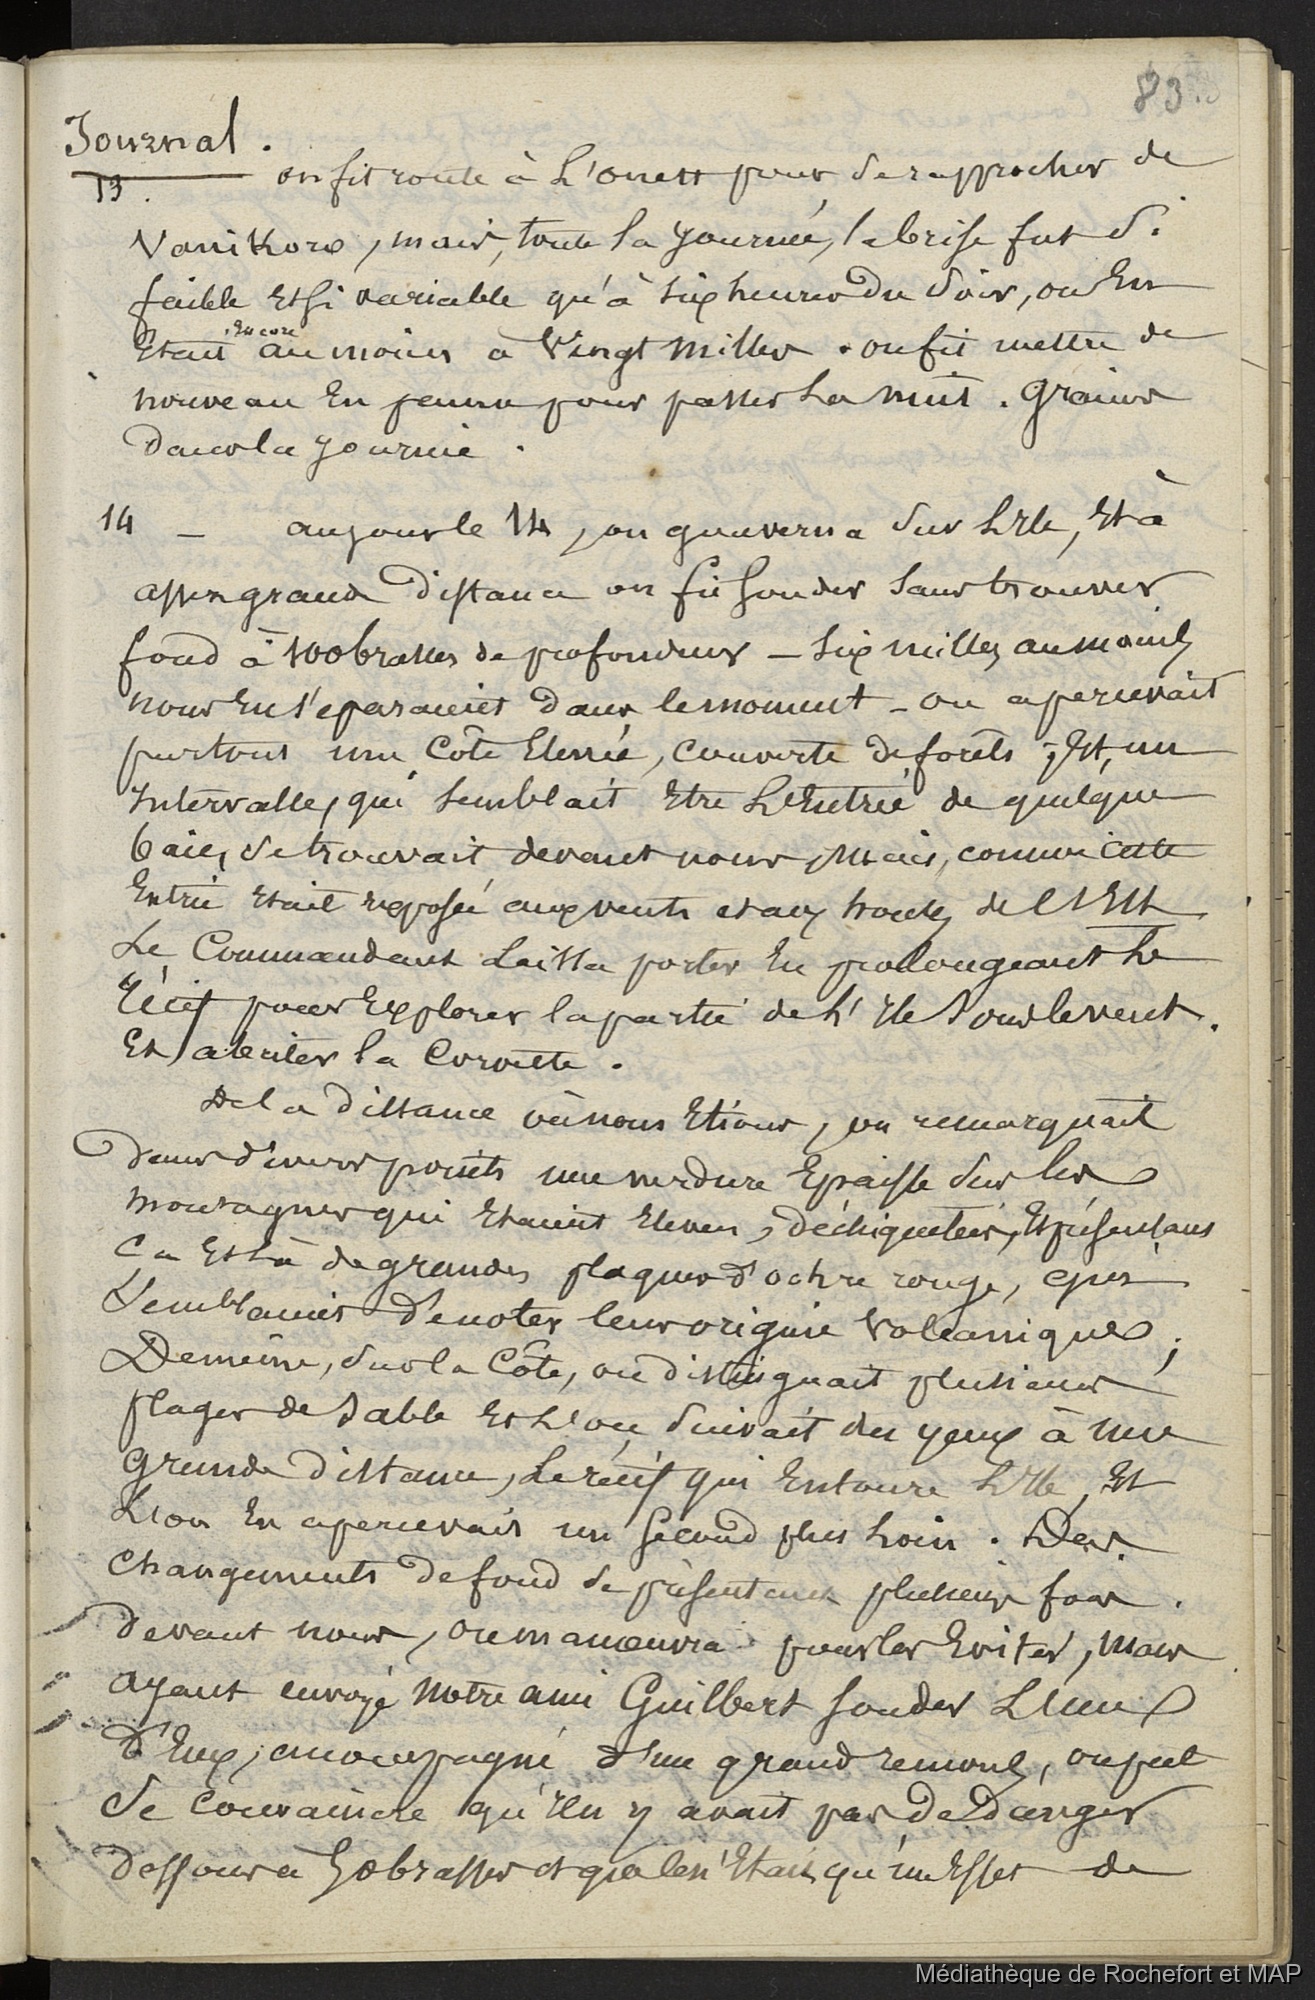 83
Journal.
13. on fit route à L'ouest pour se rapprocher de
Vanikoro, mais, toute la journée, la brise fut si
faible et si variable qu'à six heures du soir, on en
Etait encore au moins à Vingt milles. on fit mettre de
nouveau En panne pour passer La nuit. Grains
Dans la journée.
14 _ au jour le 14, on gouverna sur L'Ile, Et à
assez grande Distance on fit sonder sans trouver
fond à 100 brasses de profondeur _ six milles au moins
nous en séparaient Dans le moment _ on apercevait
partout une Côte Elevée, couverte de forêts; Et, un
Intervalle, qui semblait Etre L'Entrée de quelque
baie, se trouvait devant nous, Mais, comme cette
Entrée Etait Exposée aux vents et aux houles de l'Est
Le Commandant Laissa porter En prolongeant Le
Récif pour Explorer la partie de L'Ile sous le vent.
Et abriter la Corvette.
De la Distance où nous Etions, on remarquait
Dans divers points une verdure Epaisse sur les
montagnes qui Etaient Elevées, déchiquetées, Et présentans
Ca Et Là de grandes plaques d'ochre rouge, qui
Semblaient Dénoter leur origine Volcanique;
De même, sur la Côte, on distinguait plusieurs
plages de Sable Et L'on suivait des yeux à une
Grande Distance, Le récif qui Entoure L'Ile, Et
L'on En apercevait un second plus Loin. Des
changements de fond se présentant plusieurs fois
devant nous, on manoeuvra pour les Eviter, mais
ayant envoyé notre ami Guilbert sonder L'un
D'Eux, accompagné d'un grand remoux, on put
Se convaincre qu'il n'y avait pas De Danger
Dessous à brasses et que ce n'Etait qu'un Effet de
Médiathèque de Rochefort et MAP